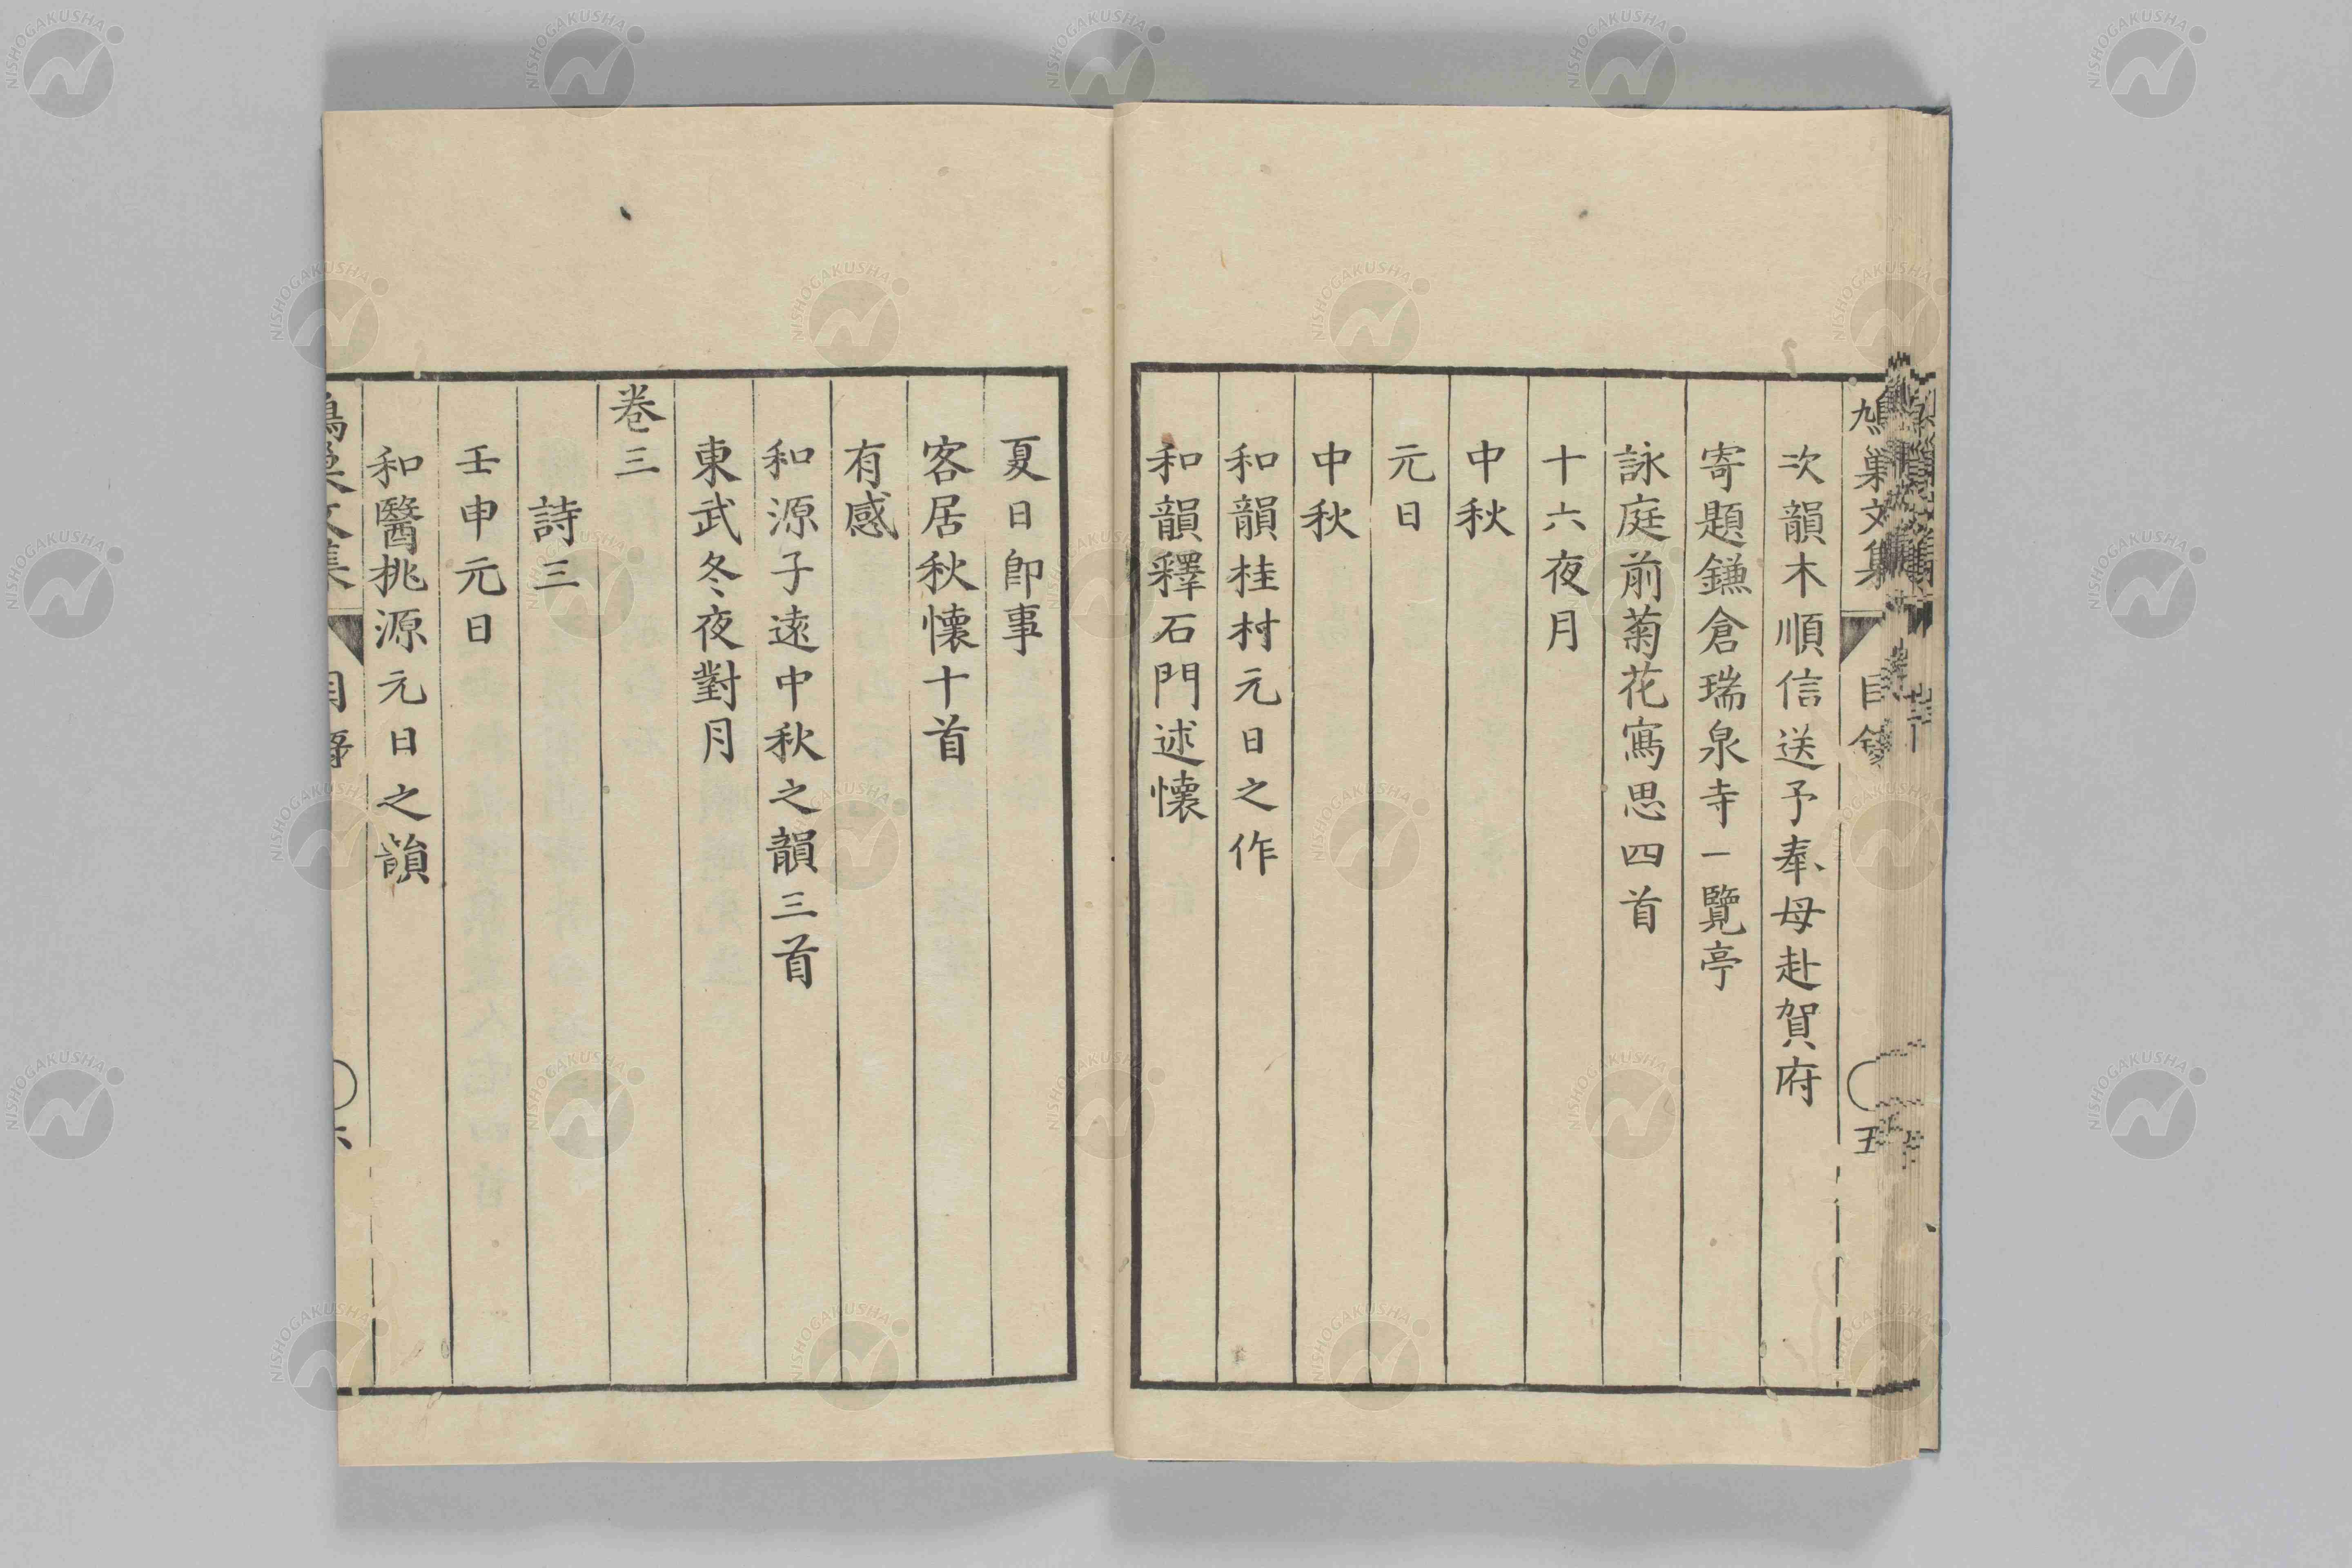 鳩巢文集 目錄 五
次韻木順信送予奉母赴賀府
寄題鎌倉瑞泉寺一覽亭
詠庭前菊花寓思四首
十六夜月
中秋
元日
中秋
和韻桂村元日之作
和韻釋石門述懷
夏日即事
客居秋懷十首
有感
和源子遠中秋之韻三首
東武冬夜對月
卷三
詩三
壬申元日
和醫桃源元日之韻
NISHOGAKUSHA